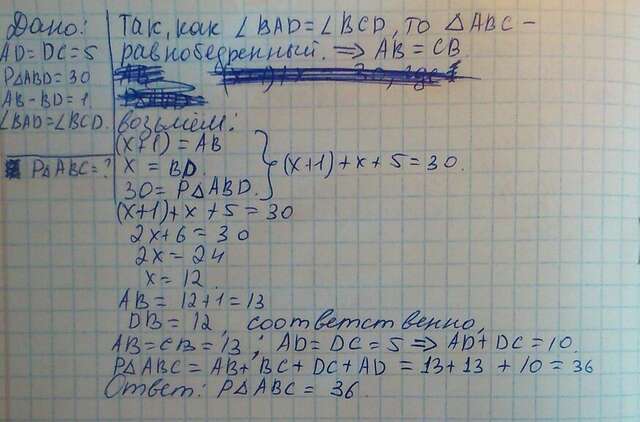 Дано:
AD=DC=5
P△ABD=30
AB-BD=1.
∠BAD=∠BCD.
P△ABC=?
Так, как ∠BAD=∠BCD, то △ABC-
равнобедренный. ⇒ AB=CB.
возьмем:
(x+1)=AB
x = BD.
30=P△ABD.
(x+1)+x+5=30.
(x+1)+x+5=30
2x+6=30
2x=24
x=12.
AB=12+1=13
DB=12, соответственно,
AB=CB=13; AD=DC=5⇒AD+DC=10.
P△ABC=AB+BC+DC+AD=13+13+10=36
Ответ: P△ABC=36.